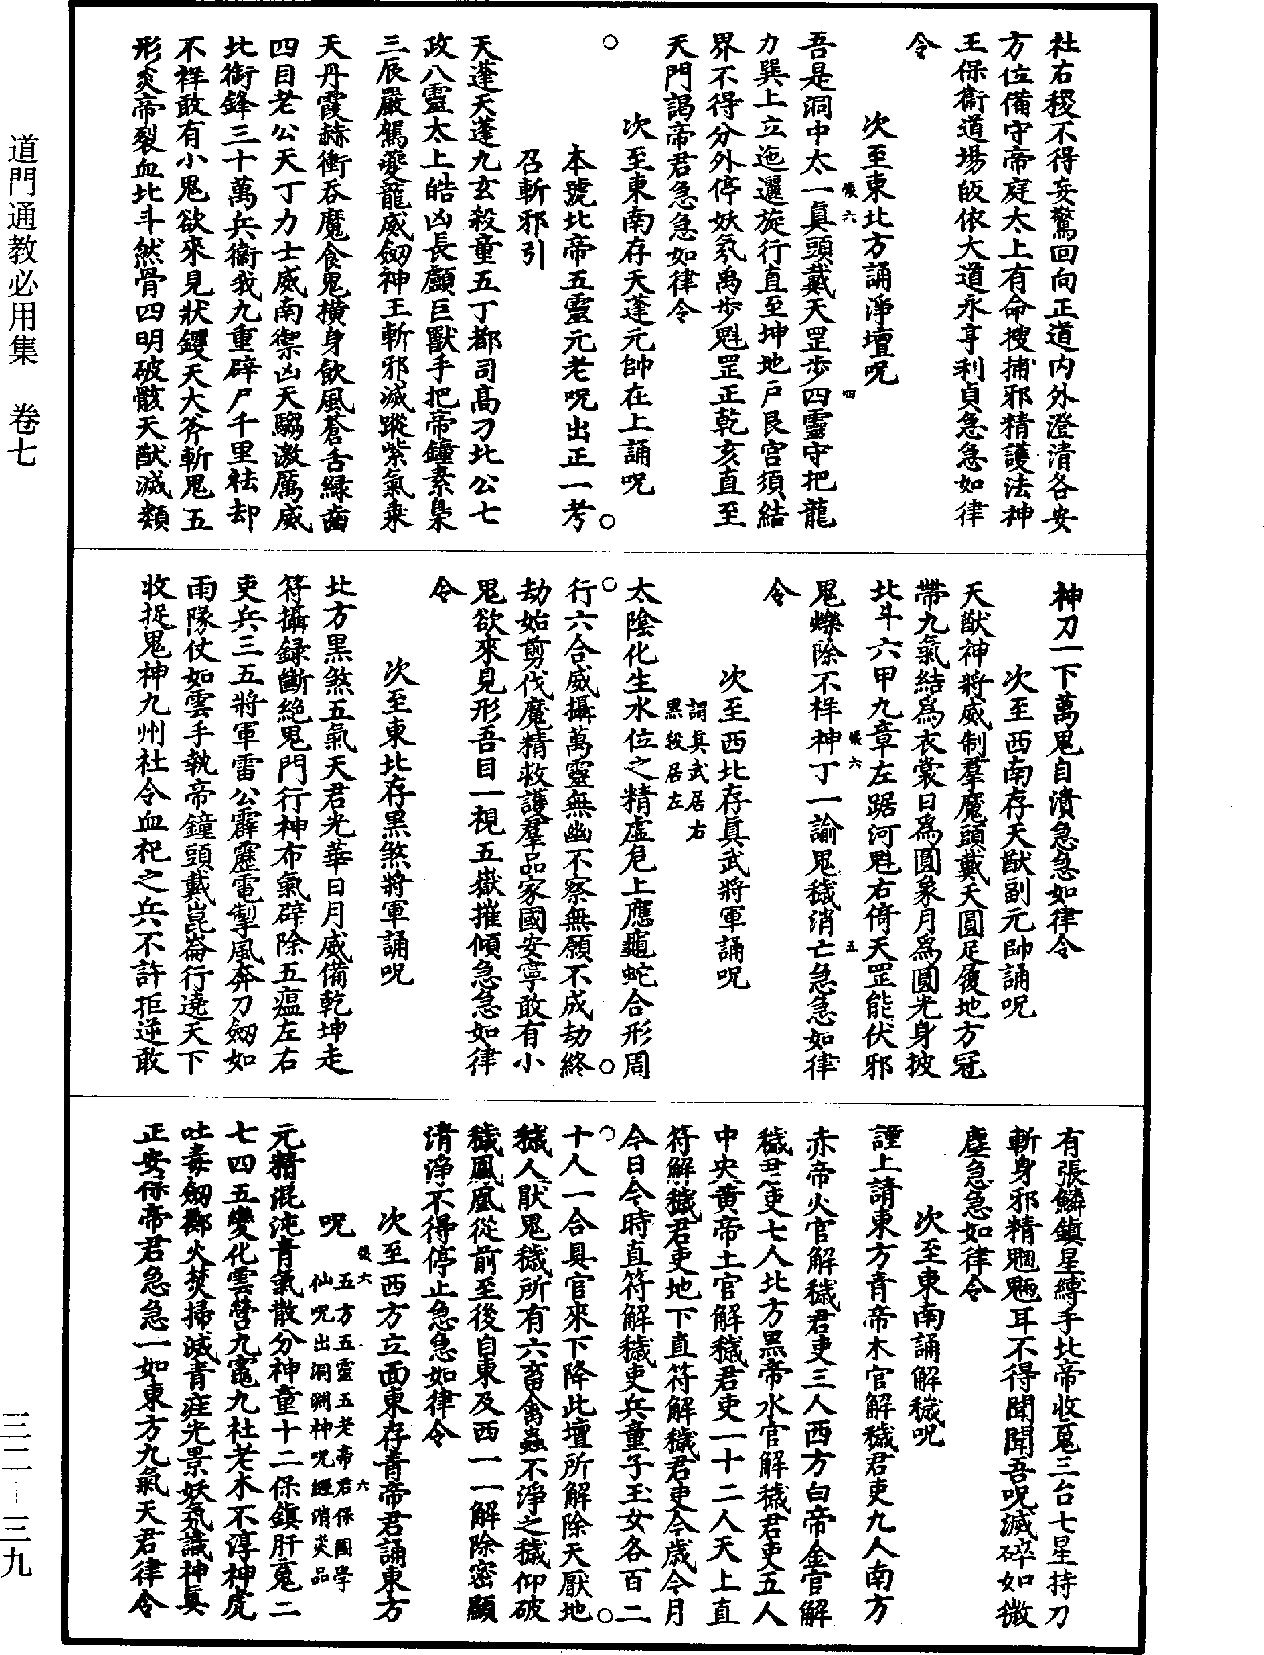 社右稷不得妄驚回向正道内外澄清各安
方位備守帝庭太上有命搜捕邪精護法神
王保衞道場皈依大道永亨利貞急急如律
令
次至東北方誦淨壇呪
吾是洞中太一真頭戴天罡步四靈守把龍
力巽上立迤邐旋行直至坤地戸艮宫須結
界不得分外停妖氛禹步魁罡正乾亥直至
天門謁帝君急急如律令
次至東南存天蓬元帥在上誦呪
本號北帝五靈元老呪出正一考
召斬邪引
天蓬天蓬九玄殺童五丁都司髙刁北公七
政八靈太上皓凶長顱巨獸手把帝鐘素梟
三辰嚴駕夔龍威劒神王斬邪滅蹤紫氣乗
天丹霞赫衝吞魔食鬼横身飲風蒼舌緑齒
四目老公天丁力士威南禦凶天騶激厲威
北銜鋒三十萬兵衞我九重辟尸千里祛却
不祥敢有小鬼欲來見狀钁天大斧斬鬼五
形炎帝裂血北斗然骨四明破骸天猷滅類
神刀一下萬鬼自潰急急如律令
次至西南存天猷副元帥誦呪
天猷神將威制羣魔頭戴天圓足履地方冠
帶九氣結爲衣裳日爲圓象月爲圓光身披
北斗六甲九章左踞河魁右倚天罡能伏邪
鬼爍除不祥神丁一諭鬼穢消亡急急如律
令
次至西北存真武將軍誦呪
謂真武居右
黑殺居左
太陰化生水位之精虛危上應龜蛇合形周
行六合威攝萬靈無幽不察無願不成劫終
劫始剪伐魔精救護羣品家國安寧敢有小
鬼欲來見形吾目一視五嶽摧傾急急如律
令
次至東北存黑煞將軍誦呪
北方黑煞五氣天君光華日月威備乾坤走
符攝録斷絶鬼門行神布氣辟除五瘟左右
吏兵三五將軍雷公霹靂電掣風奔刀劒如
雨隊仗如雲手執帝鐘頭戴崑崙行遶天下
收捉鬼神九州社令血祀之兵不許拒逆敢
有張鱗鎮星縛手北帝收䰟三台七星持刀
斬身邪精魍魎耳不得聞聞吾呪滅碎如微
塵急急如律令
次至東南誦解穢呪
謹上請東方青帝木官解穢君吏九人南方
赤帝火官解穢君吏三人西方白帝金官解
穢君吏七人北方黑帝水官解穢君吏五人
中央黄帝土官解穢君吏一十二人天上直
符解穢君吏地下直符解穢君吏今歲今月
今日今時直符解穢吏兵童子玉女各百二
十人一合具官來下降此壇所解除天厭地
穢人厭鬼穢所有六畜禽蟲不淨之穢仰破
穢鳳凰從前至後自東及西一一解除密顯
清淨不得停止急急如律令
次至西方立面東存青帝君誦東方
呪
五方五靈五老帝君保國學
仙呪出洞淵神呪經消災品
元精混沌青氣散分神童十二保鎮肝䰟二
七四五變化雲營九竈九杜老木不淳神虎
吐毒劒擲火焚掃滅青疰光景妖氛識神真
正安保帝君急急一如東方九氣天君律令
道門通教必用集 卷七
三二—三九